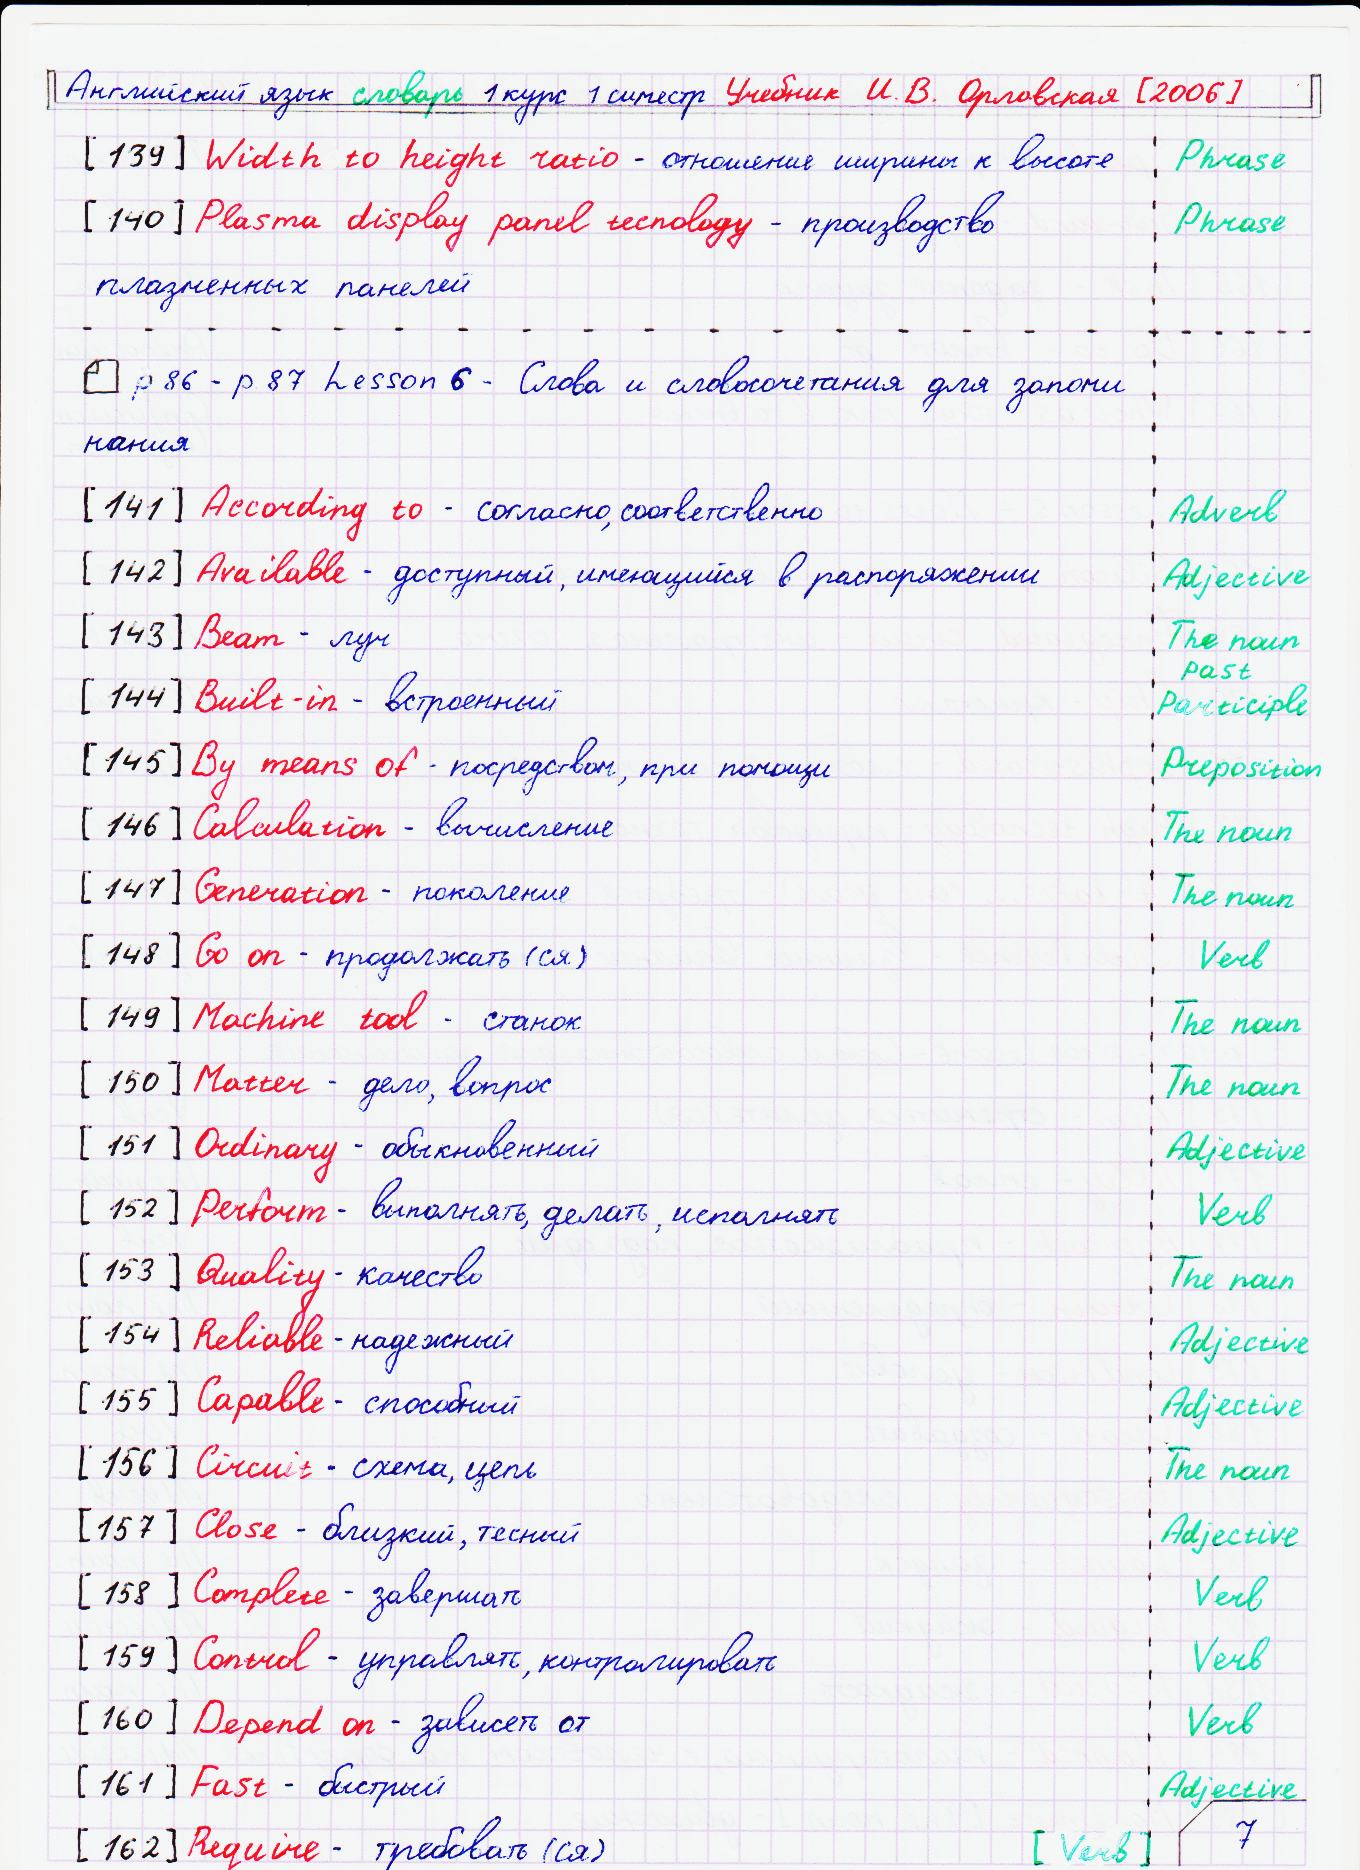 Английский язык словарь 1 курс 1 симестр Учебник И.В. Орловская [2006]
[139] Width to height ratio - отношение ширины к высоте Phrase
[140] Plasma display panel tecnology - производство Phrase
плазменных панелей
p 86 - p 87 Lesson 6 - Слова и словосочетания для запоми
нания
[141] According to - согласно, соответственно Adverb
[142] Available - доступный, имеющийся в распоряжении Adjective
[143] Beam - луч The noun
[144] Built-in - встроенный Past Participle
[145] By means of - посредством, при помощи Preposition
[146] Calculation - вычисление The noun
[147] Generation - поколение The noun
[148] Go on - продолжать (ся) Verb
[149] Machine tool - станок The noun
[150] Matter - дело, вопрос The noun
[151] Ordinary - обыкновенный Adjective
[152] Perform - выполнять, делать, исполнять Verb
[153] Quality - качество The noun
[154] Reliable - надежный Adjective
[155] Capable - способный Adjective
[156] Circuit - схема, цепь The noun
[157] Close - близкий, тесный Adjective
[158] Complete - завершать Verb
[159] Control - управлять, контролировать Verb
[160] Depend on - зависеть от Verb
[161] Fast - быстрый Adjective
[162] Require - требовать (ся) [Verb] 7